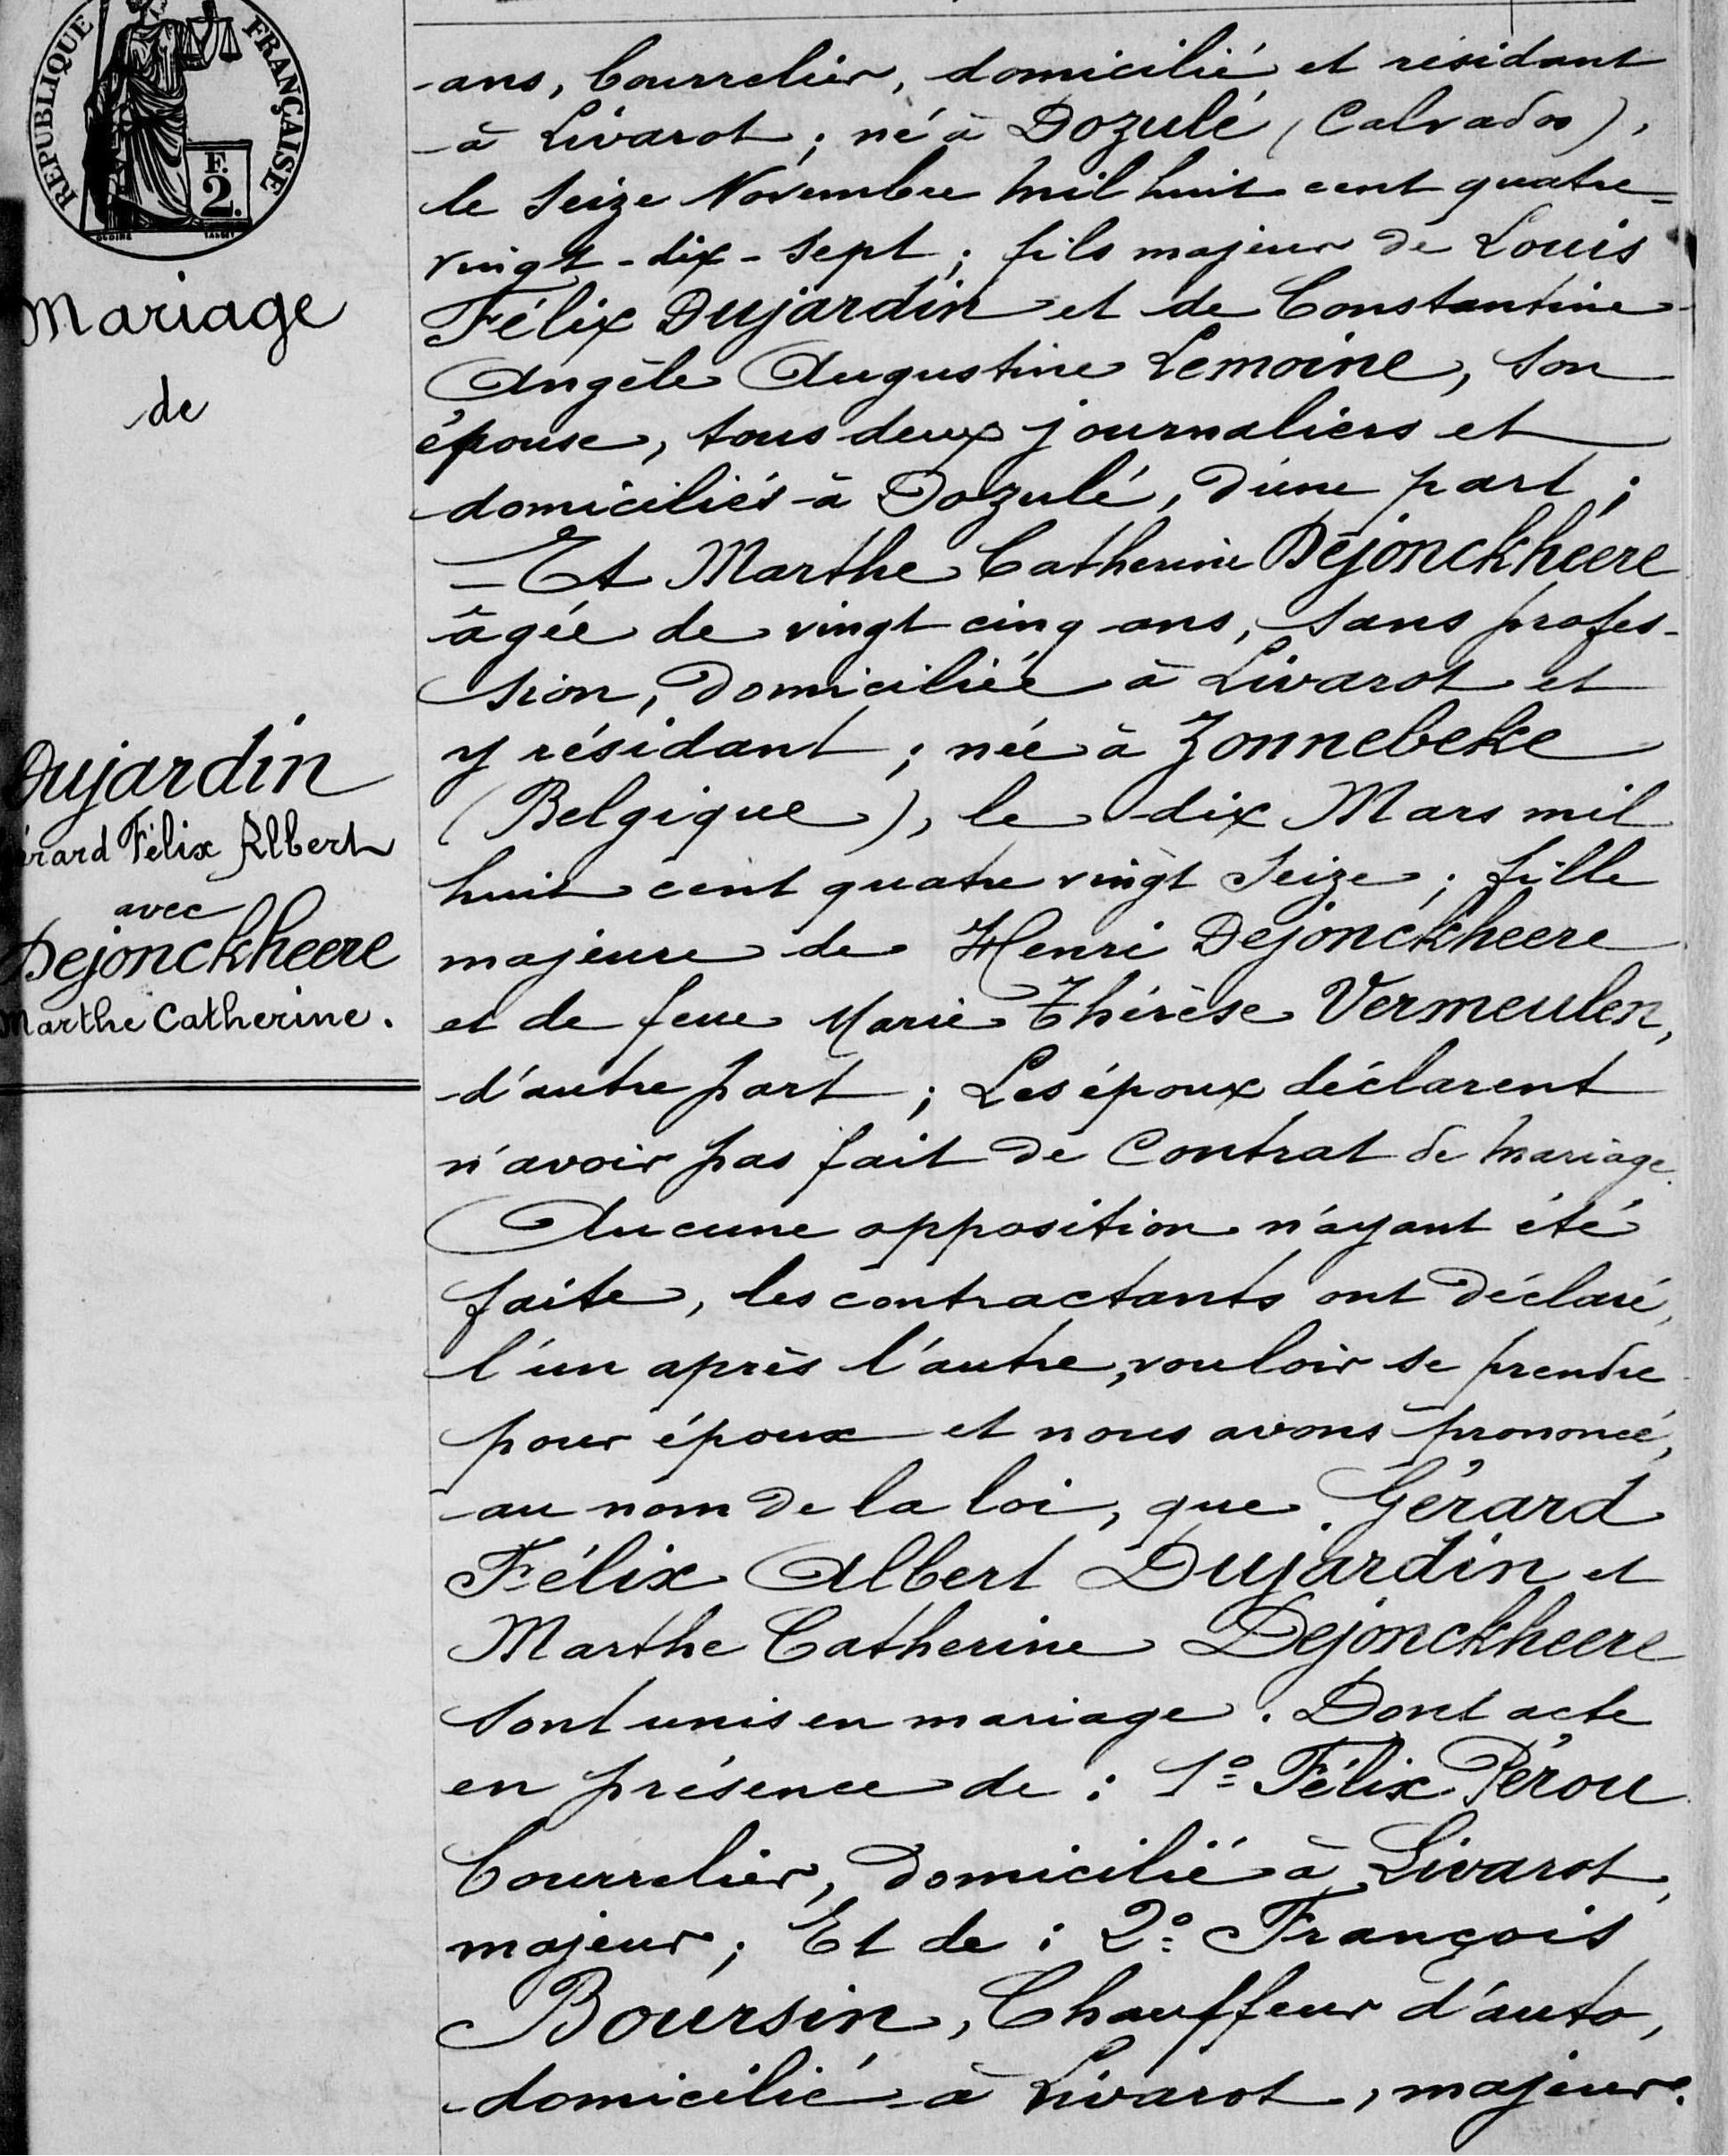 RÉPUBLIQUE FRANÇAISE
F.
2.
Mariage
de
Dujardin
érard Félix Albert
avec
Dejonckheere
Marthe Catherine.
ans, bourrelier, domicilié et résidant
à Livarot ; né à Dozulé (Calvados),
le seize Novembre mil huit cent quatre=
vingt-dix-sept ; fils majeur de Louis
Félix Dujardin et de Constantine
Angèle Augustine Lemoine, son
épouse, tous deux journaliers et
domiciliés à Dozulé, d'une part ;
— Et Marthe Catherine Dejonckhéere
âgée de vingt cinq ans, sans profes-
sion, domiciliée à Livarot et
y résidant ; née à Zonnebeke
(Belgique), le dix Mars mil
huit cent quatre vingt seize ; fille
majeure de Henri Dejonckheere
et de feue Marie Thérèse Vermeulen,
d'autre part ; Les époux déclarent
n'avoir pas fait de contrat de mariage.
Aucune opposition n'ayant été
faite, les contractants ont déclaré,
l'un après l'autre, vouloir se prendre
pour époux et nous avons prononcé,
au nom de la loi, que Gérard
Félix Albert Dujardin et
Marthe Catherine Dejonckheere
sont unis en mariage. Dont acte
en présence de : 1º Félix Pérou
bourrelier, domicilié à Livarot,
majeur ; Et de : 2º François
Boursin, Chauffeur d'auto,
domicilié à Livarot, majeur.